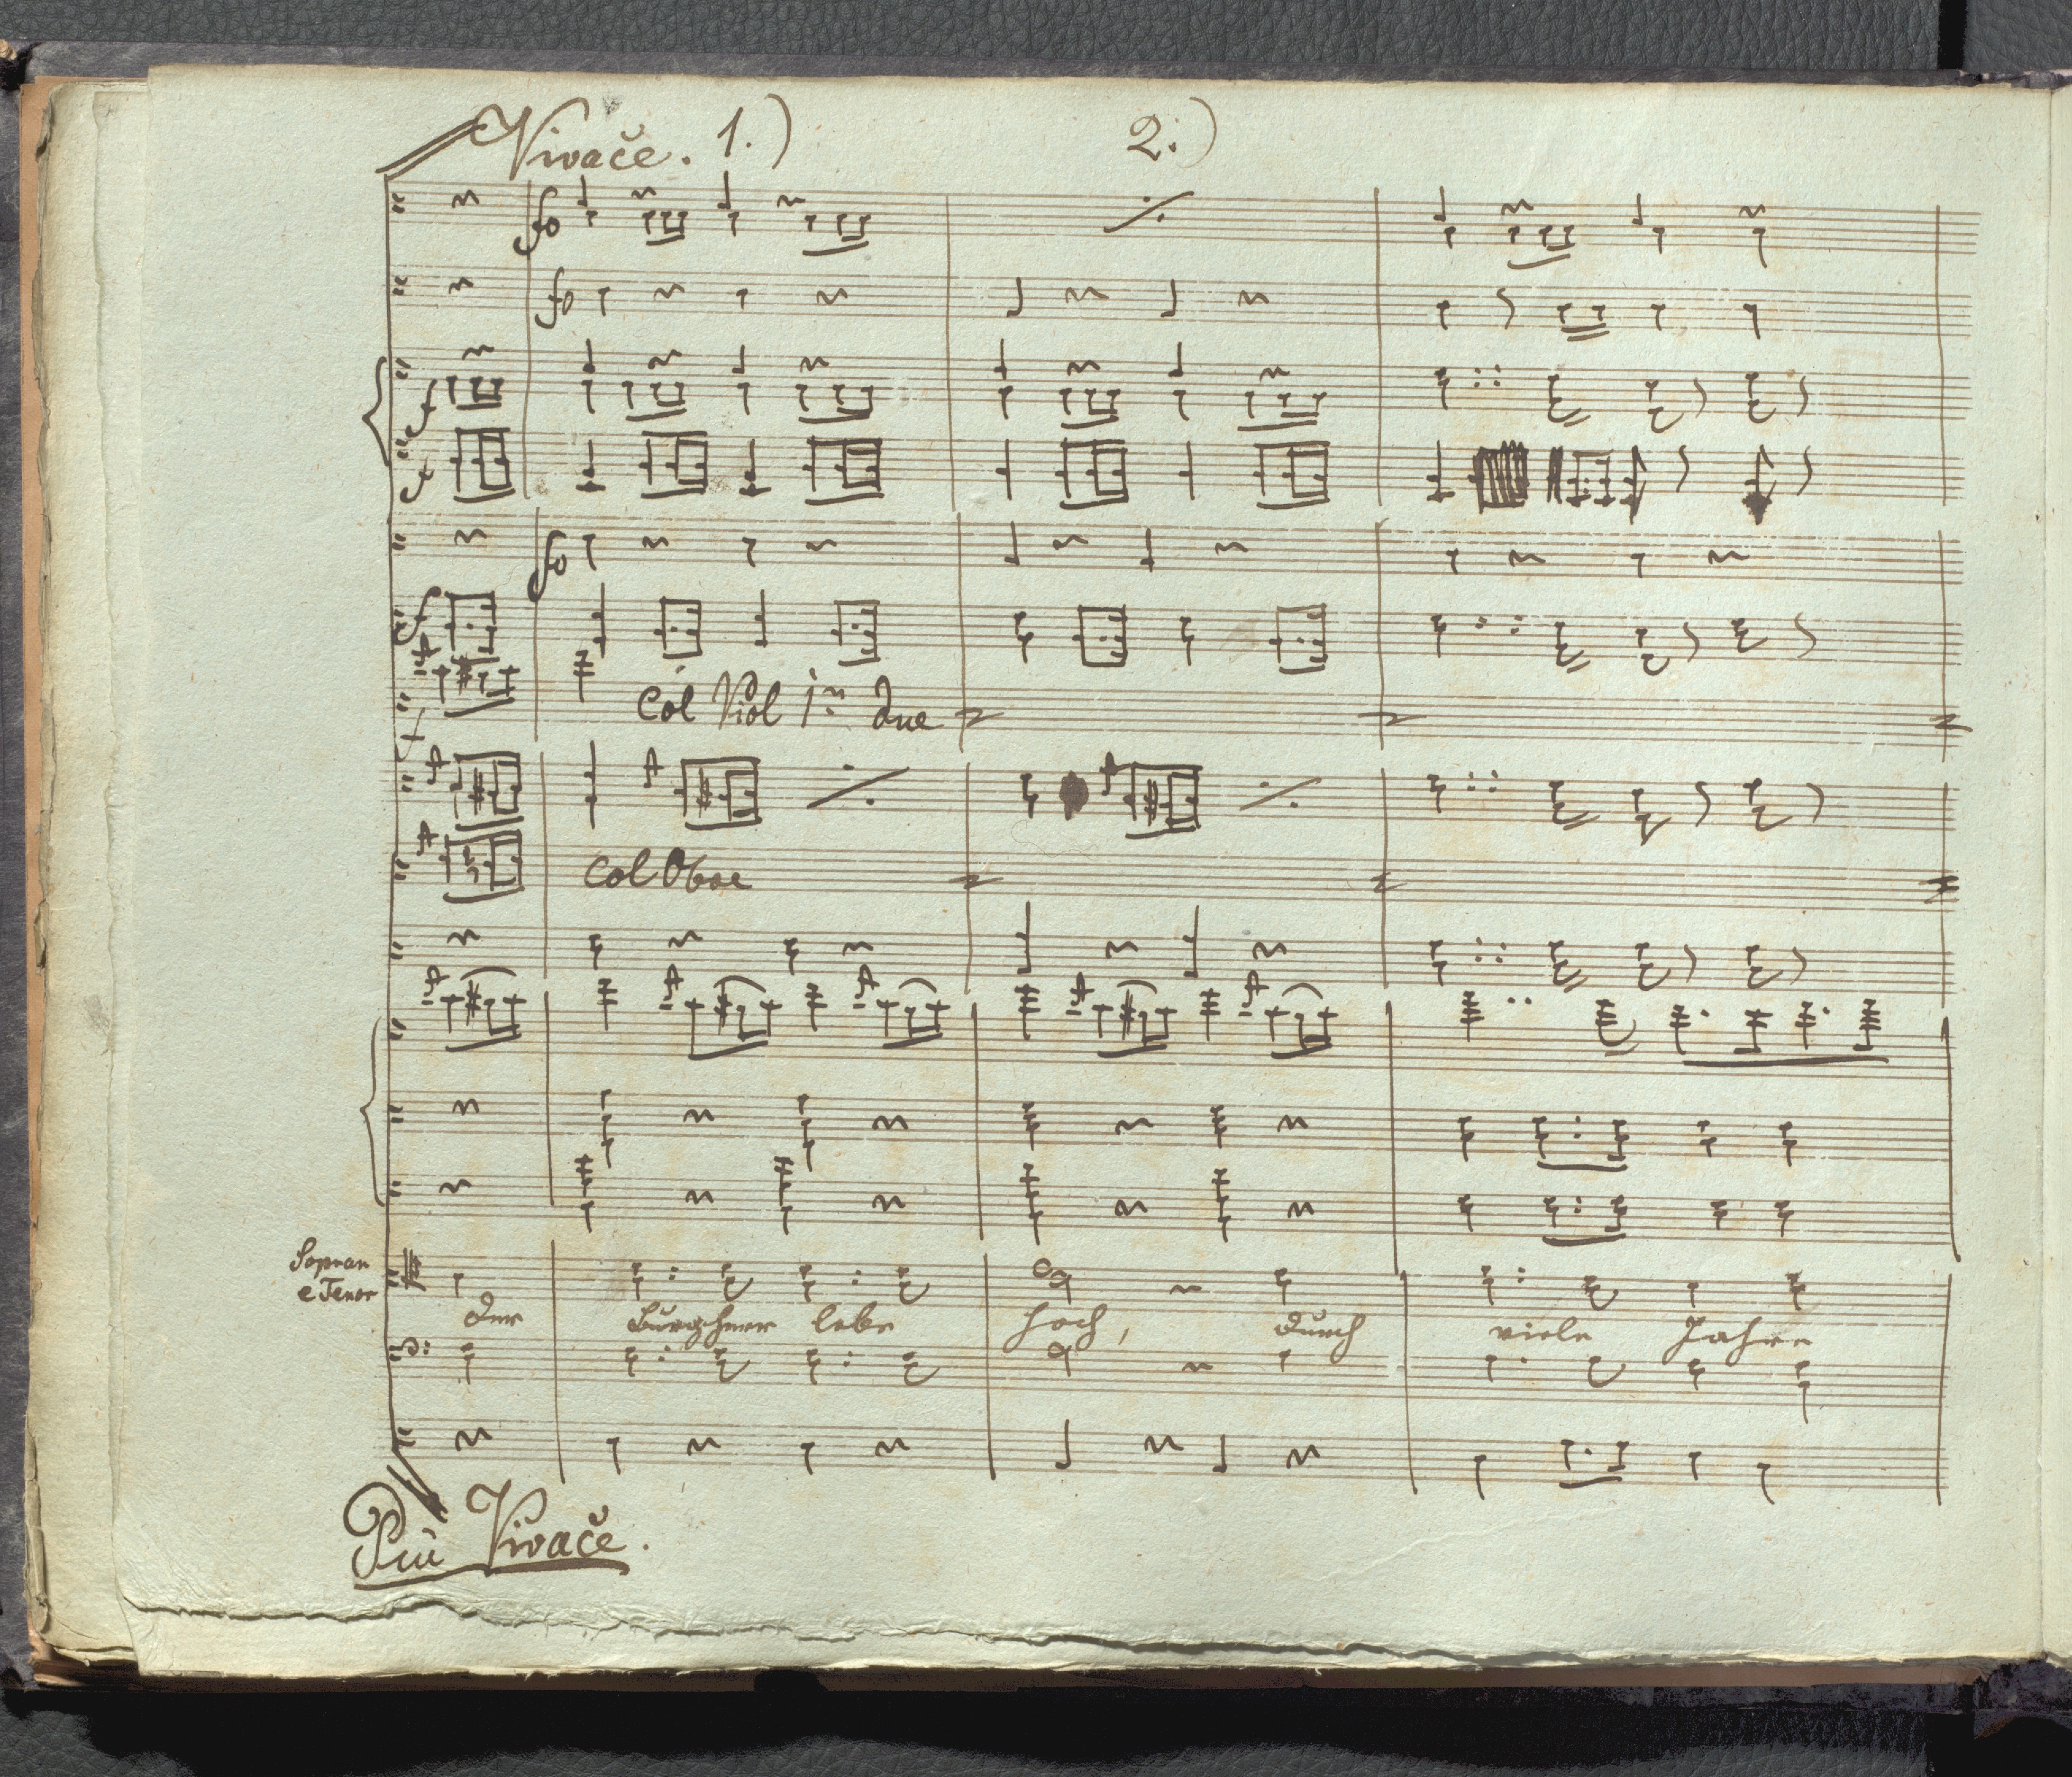 Vivače. 1.) 2:)
fo
fo
f
f
fo
f
f
Col Viol 1n due
Col Oboe
Sopran
e Tenor
der Burgherr lebe hoch, durch viele Jahre
Più Vivače.